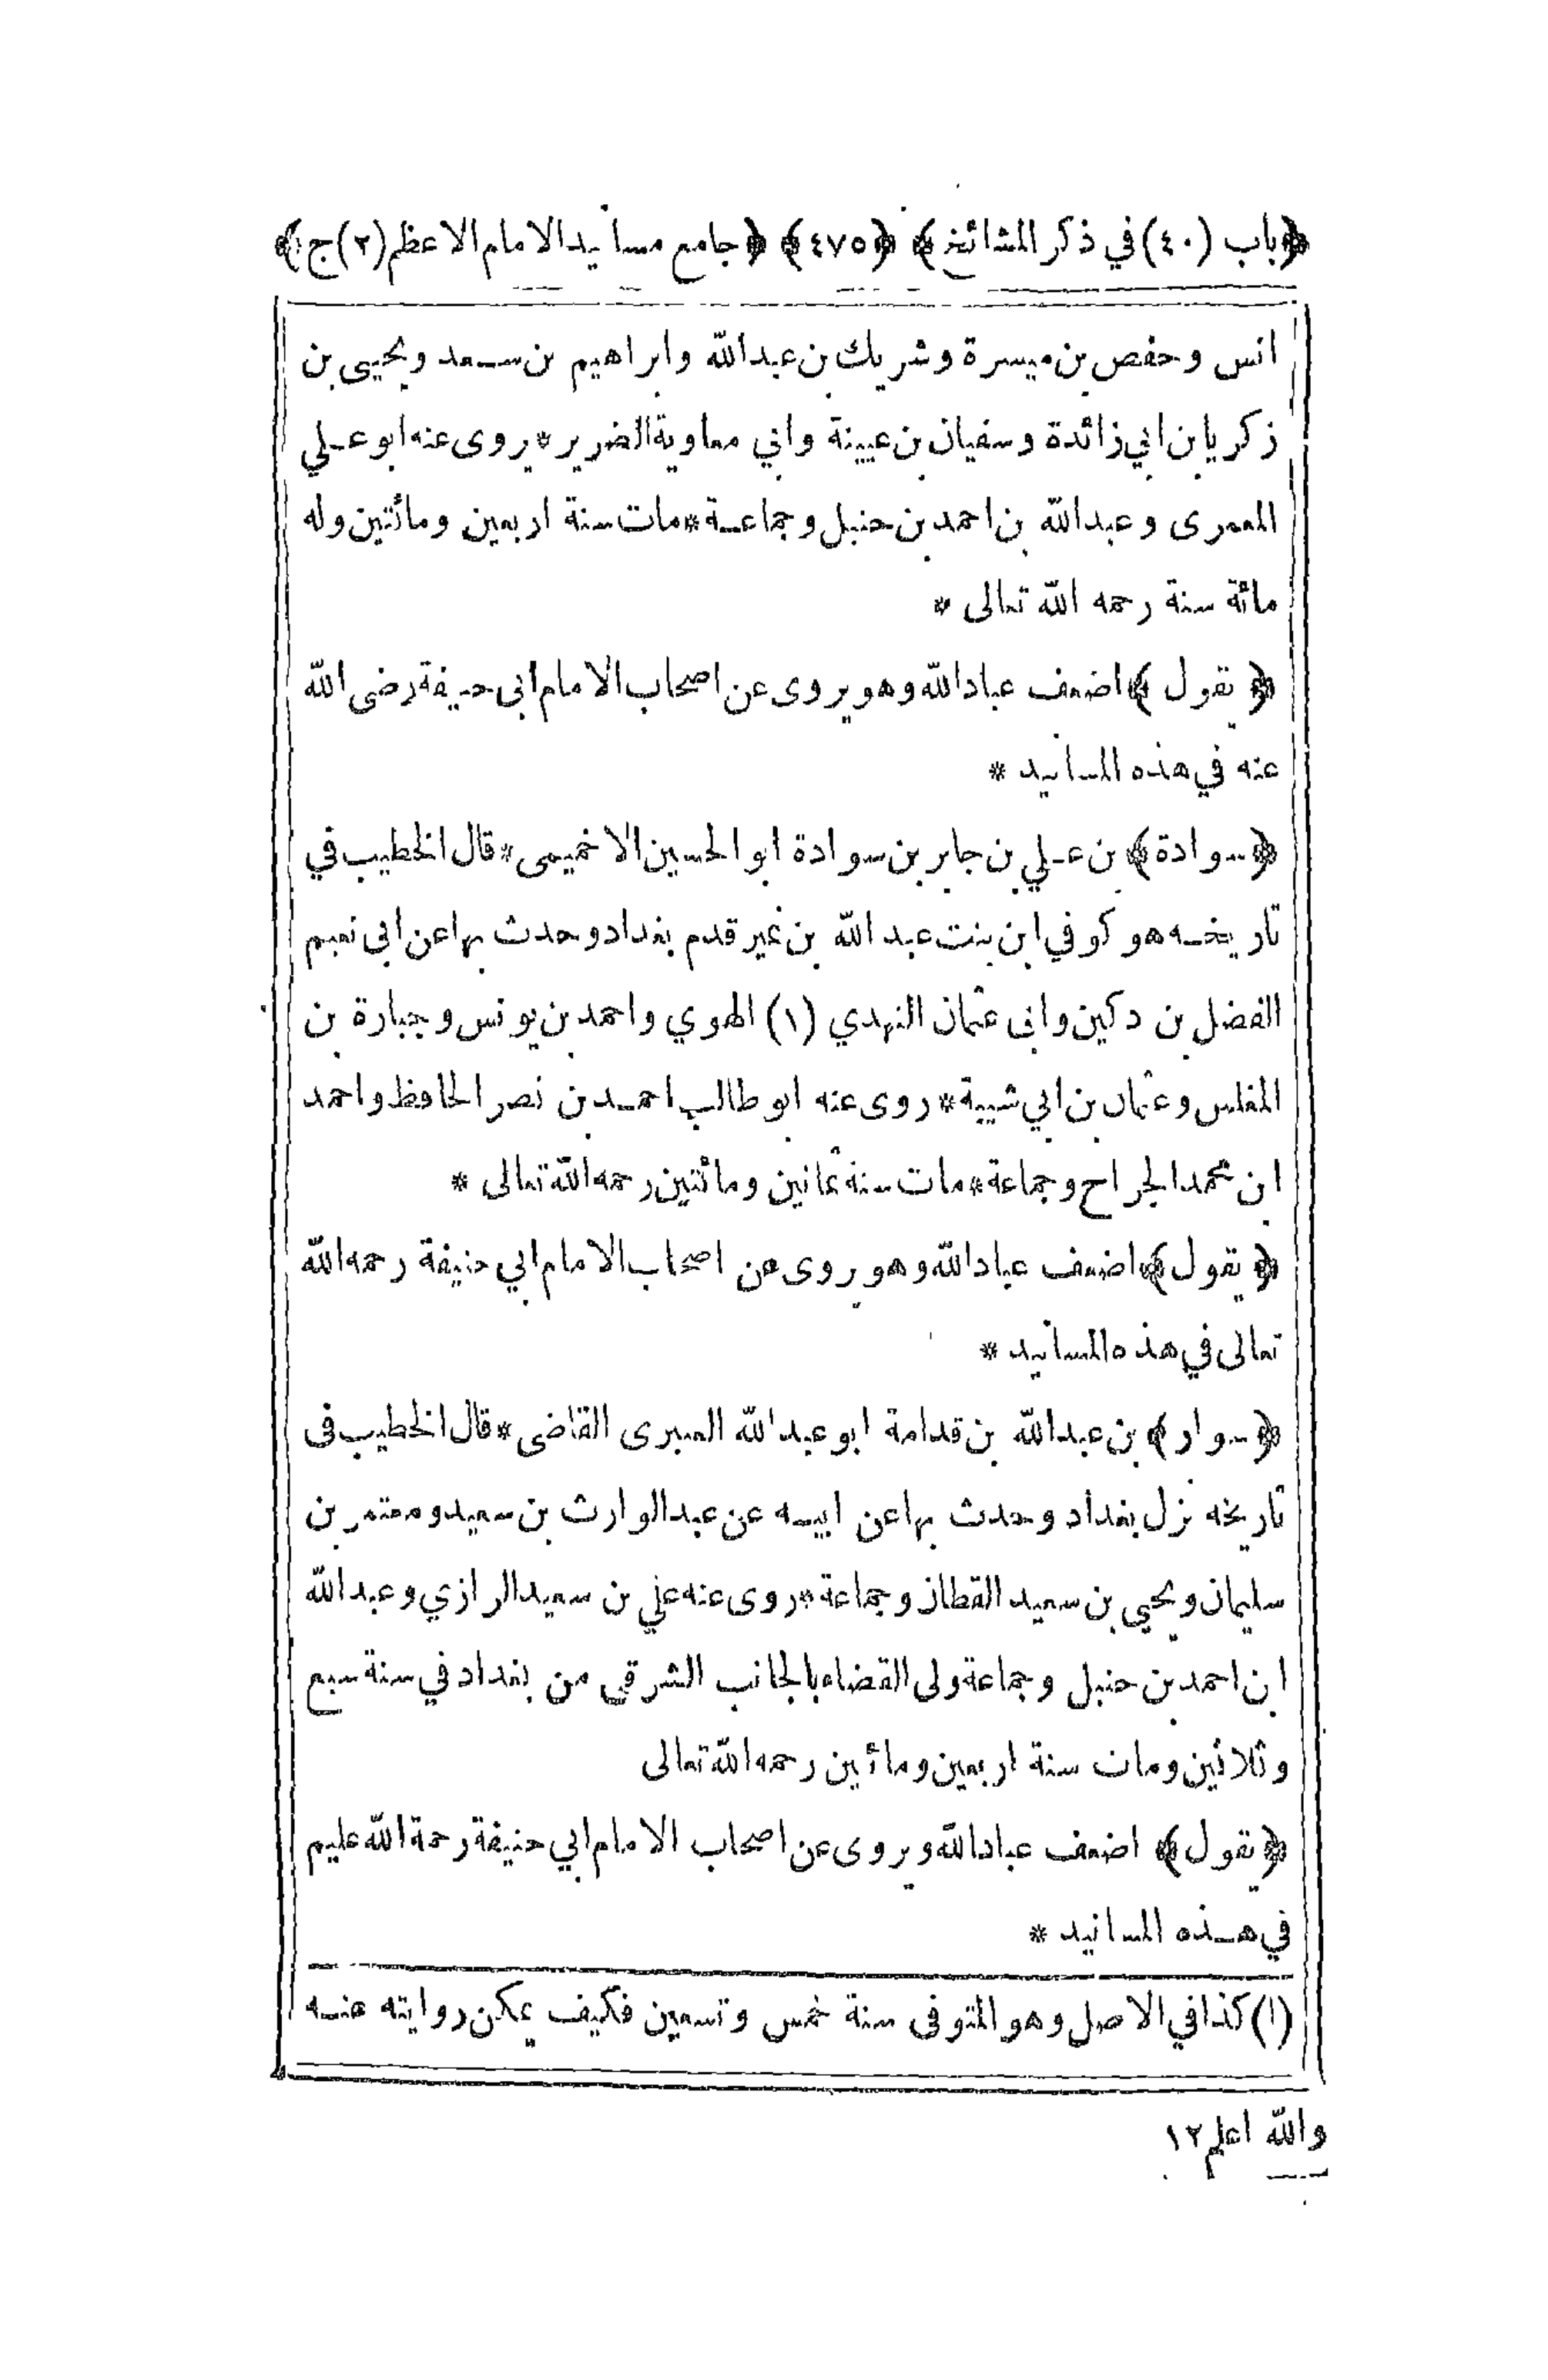 ﴿باب (٤٠) في ذكر المشائخ﴾ ﴿٤٧٥﴾ ﴿جامع مسانيد الامام الاعظم (٢) ج﴾
انس وحفص بن ميسرة وشريك بن عبد الله وابراهيم بن سعد ويحيى بن
زكريا بن ابي زائدة وسفيان بن عيينة وابي معاوية الضرير * يروى عنه ابو علي
المعمرى وعبد الله بن احمد بن حنبل وجماعة * مات سنة اربعين ومائتين وله
مائة سنة رحمه الله تعالى *
﴿يقول﴾ اضعف عباد الله وهو يروى عن اصحاب الامام ابى حنيفة رضى الله
عنه في هذه المسانيد *
﴿سوادة﴾ بن علي بن جابر بن سوادة ابو الحسين الاخميمى * قال الخطيب في
تاريخه هو كوفي ابن بنت عبد الله بن نمير قدم بغداد وحدث بها عن ابى نعيم
الفضل بن دكين وابى عثمان النهدي (١) الهوي واحمد بن يونس وجبارة بن
المغلس وعثمان بن ابي شيبة * روى عنه ابو طالب احمد بن نصر الحافظ واحمد
ابن محمد الجراح وجماعة * مات سنة ثمانين ومائتين رحمه الله تعالى *
﴿يقول﴾ اضعف عباد الله وهو يروى عن اصحاب الامام ابي حنيفة رحمه الله
تعالى في هذه المسانيد *
﴿سوار﴾ بن عبد الله بن قدامة ابو عبد الله العنبرى القاضى * قال الخطيب فى
تاريخه نزل بغداد وحدث بها عن ابيه عن عبد الوارث بن سعيد ومعتمر بن
سليمان ويحيى بن سعيد القطان وجماعة * روى عنه علي بن سعيد الرازي وعبد الله
ابن احمد بن حنبل وجماعة ولى القضاء بالجانب الشرقى من بغداد في سنة سبع
وثلاثين ومات سنة اربعين ومائتين رحمه الله تعالى
﴿يقول﴾ اضعف عباد الله ويروى عن اصحاب الامام ابي حنيفة رحمة الله عليهم
في هذه المسانيد *
(١) كذا في الاصل وهو المتوفى سنة خمس وتسعين فكيف يمكن روايته عنه
والله اعلم ١٢